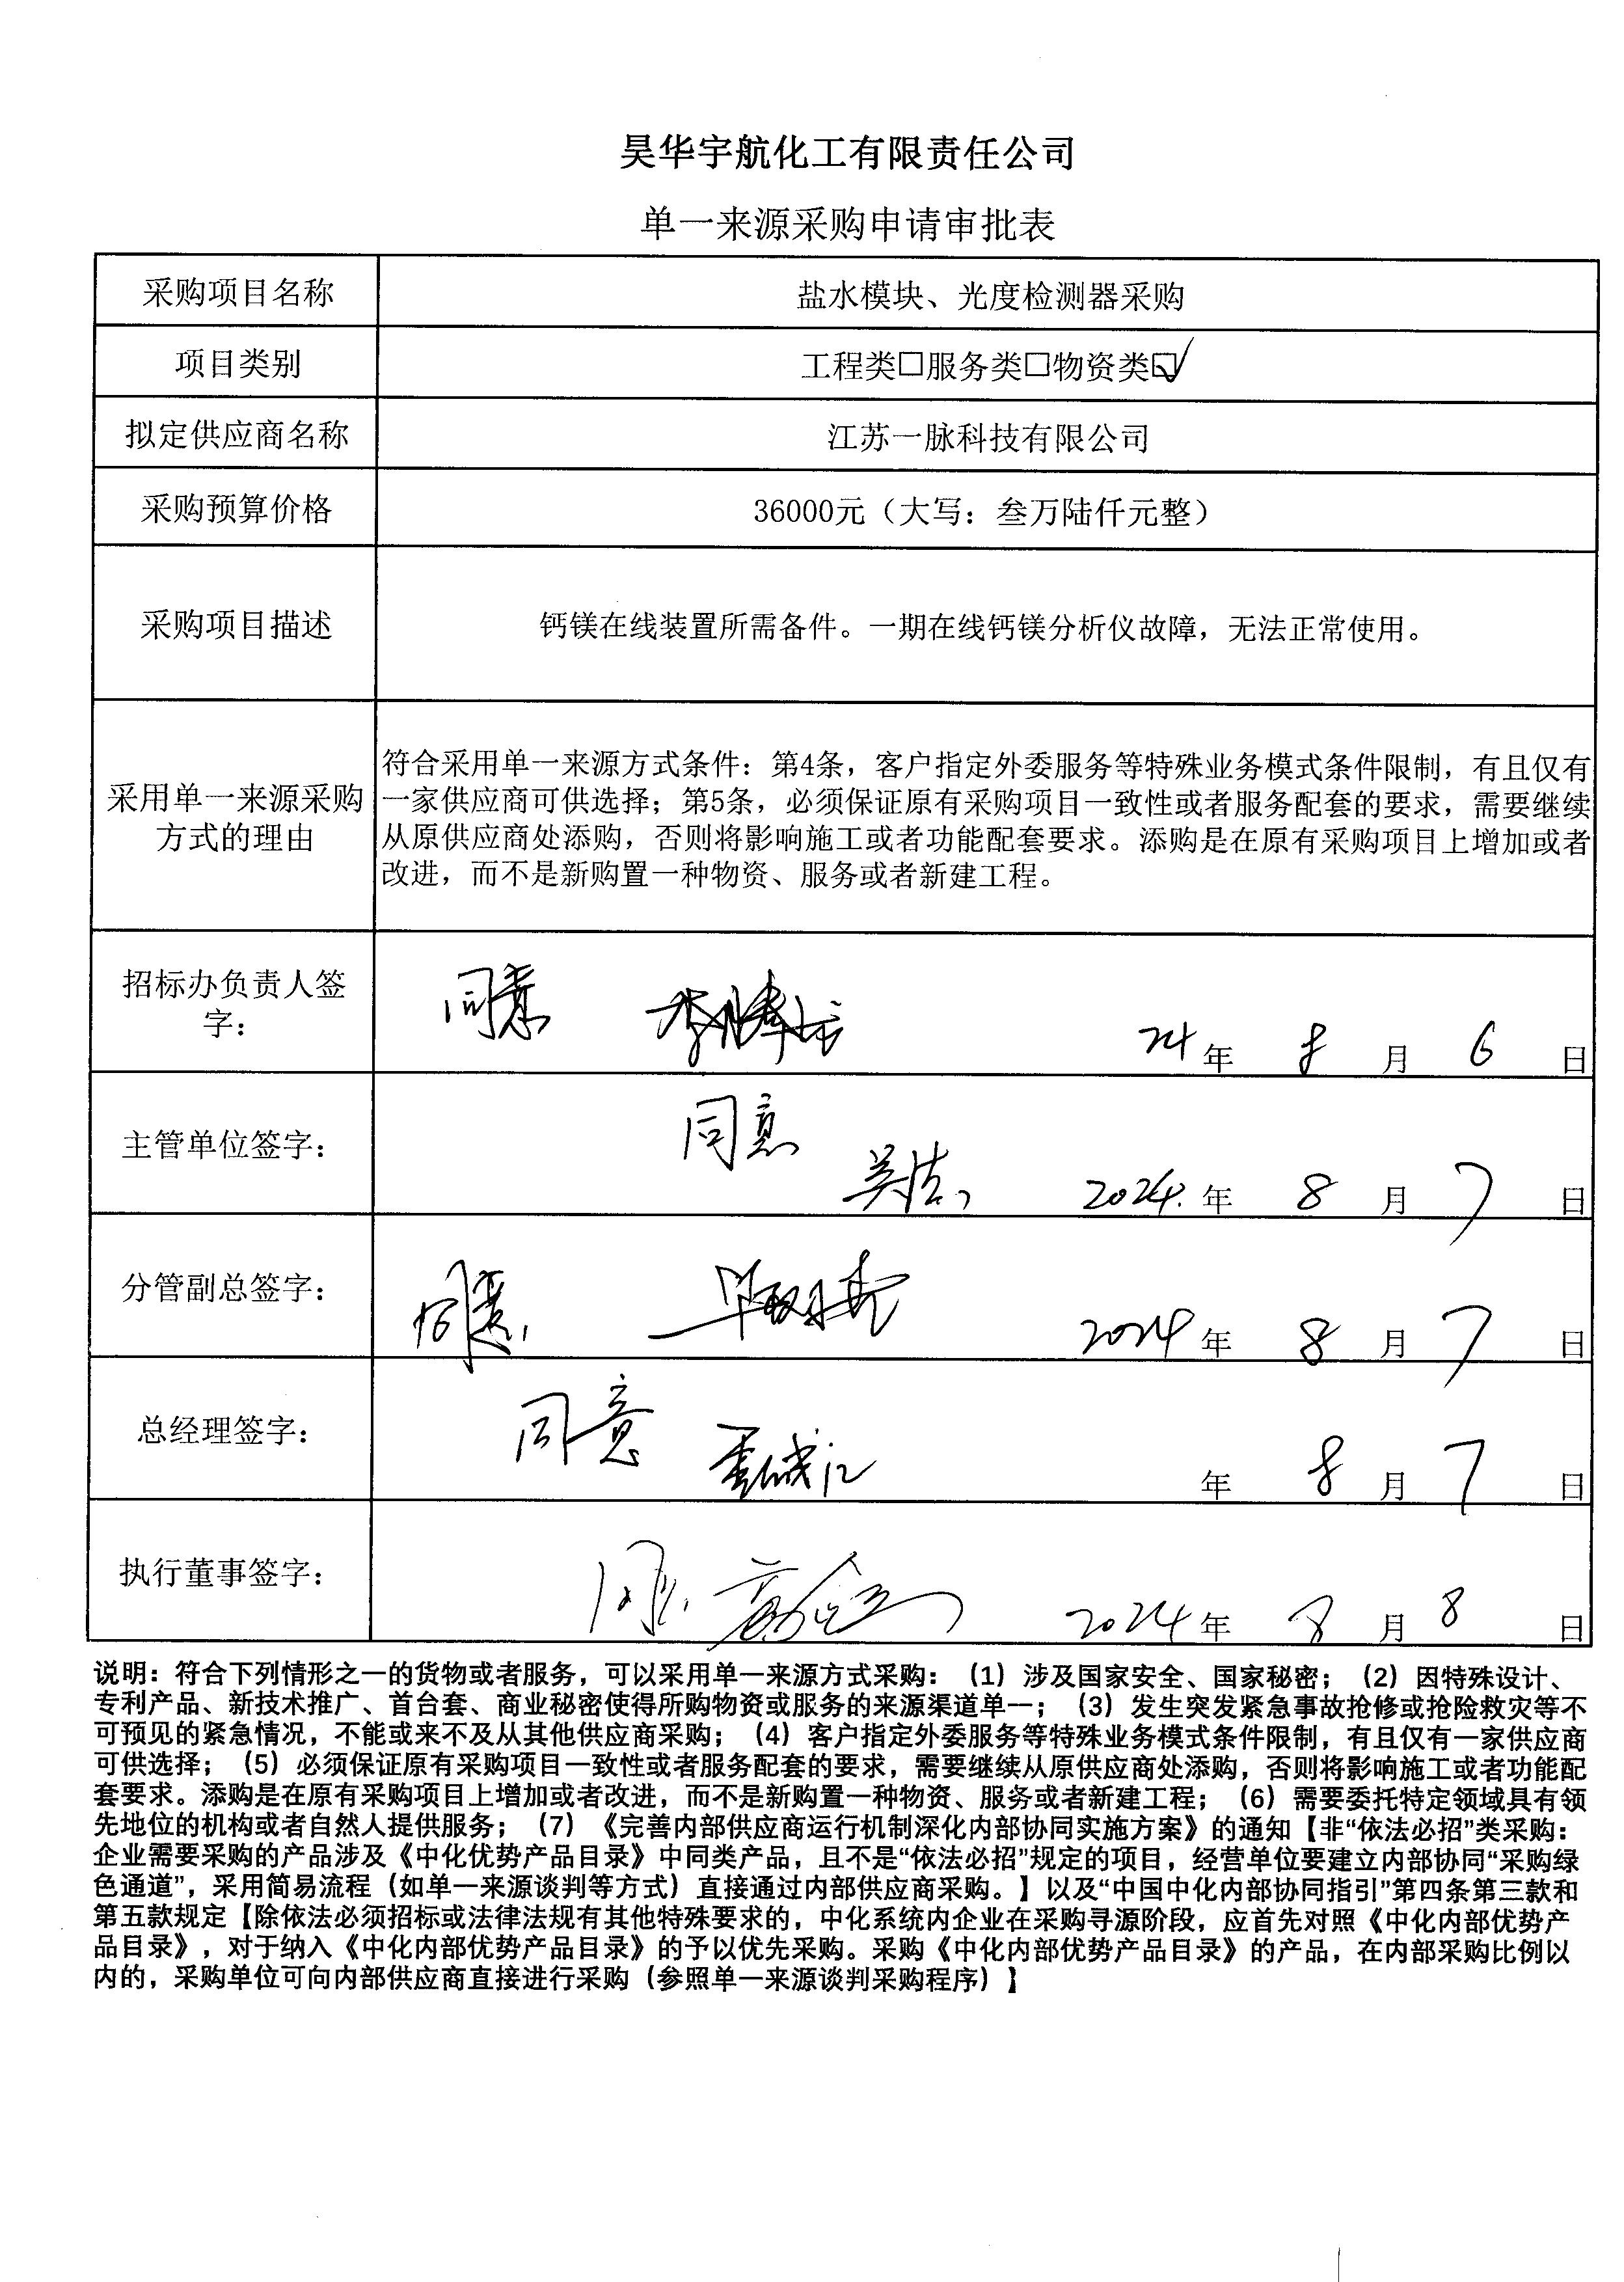 昊华宇航化工有限责任公司
单一来源采购申请审批表
采购项目名称
盐水模块、光度检测器采购
项目类别
工程类□服务类□物资类☑
拟定供应商名称
江苏一脉科技有限公司
采购预算价格
36000元（大写：叁万陆仟元整）
采购项目描述
钙镁在线装置所需备件。一期在线钙镁分析仪故障，无法正常使用。
采用单一来源采购
方式的理由
符合采用单一来源方式条件：第4条，客户指定外委服务等特殊业务模式条件限制，有且仅有
一家供应商可供选择；第5条，必须保证原有采购项目一致性或者服务配套的要求，需要继续
从原供应商处添购，否则将影响施工或者功能配套要求。添购是在原有采购项目上增加或者
改进，而不是新购置一种物资、服务或者新建工程。
招标办负责人签
字：
同意 24年 8月 6日
主管单位签字：
同意
2024.年 8月 7日
分管副总签字：
同意 2024年 8月 7日
总经理签字：
同意 年 8月 7日
执行董事签字：
同意 2024年 8月 8日
说明：符合下列情形之一的货物或者服务，可以采用单一来源方式采购：（1）涉及国家安全、国家秘密；（2）因特殊设计、
专利产品、新技术推广、首台套、商业秘密使得所购物资或服务的来源渠道单一；（3）发生突发紧急事故抢修或抢险救灾等不
可预见的紧急情况，不能或来不及从其他供应商采购；（4）客户指定外委服务等特殊业务模式条件限制，有且仅有一家供应商
可供选择；（5）必须保证原有采购项目一致性或者服务配套的要求，需要继续从原供应商处添购，否则将影响施工或者功能配
套要求。添购是在原有采购项目上增加或者改进，而不是新购置一种物资、服务或者新建工程；（6）需要委托特定领域具有领
先地位的机构或者自然人提供服务；（7）《完善内部供应商运行机制深化内部协同实施方案》的通知【非“依法必招”类采购：
企业需要采购的产品涉及《中化优势产品目录》中同类产品，且不是“依法必招”规定的项目，经营单位要建立内部协同“采购绿
色通道”，采用简易流程（如单一来源谈判等方式）直接通过内部供应商采购。】以及“中国中化内部协同指引”第四条第三款和
第五款规定【除依法必须招标或法律法规有其他特殊要求的，中化系统内企业在采购寻源阶段，应首先对照《中化内部优势产
品目录》，对于纳入《中化内部优势产品目录》的予以优先采购。采购《中化内部优势产品目录》的产品，在内部采购比例以
内的，采购单位可向内部供应商直接进行采购（参照单一来源谈判采购程序）】